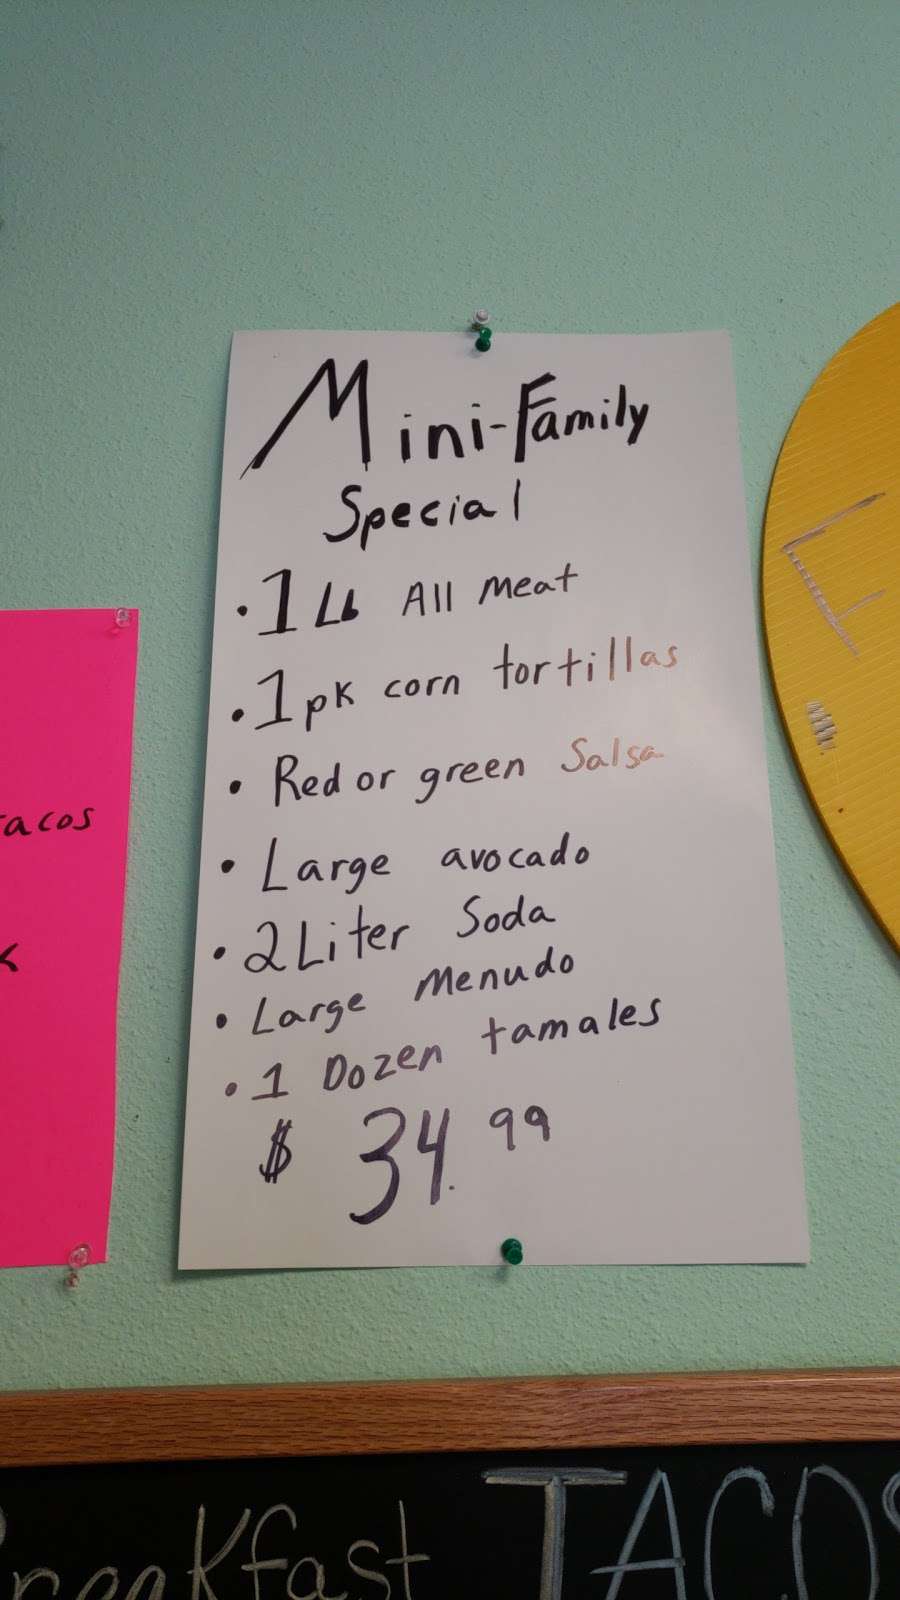 Mini-Family
Special
• 1 Lb All meat
• 1 pk corn tortillas
• Red or green Salsa
• Large avocado
• 2 Liter Soda
• Large Menudo
• 1 Dozen tamales
$ 34.99
tacos
Breakfast TACOS